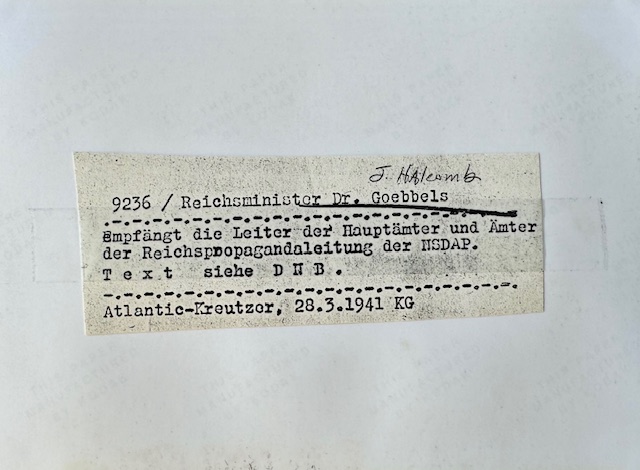 J. Halcomb
9236 / Reichsminister Dr. Goebbels
empfängt die Leiter der Hauptämter und Ämter
der Reichspropagandaleitung der NSDAP.
T e x t siehe D N B .
Atlantic-Kreutzer, 28.3.1941 KG